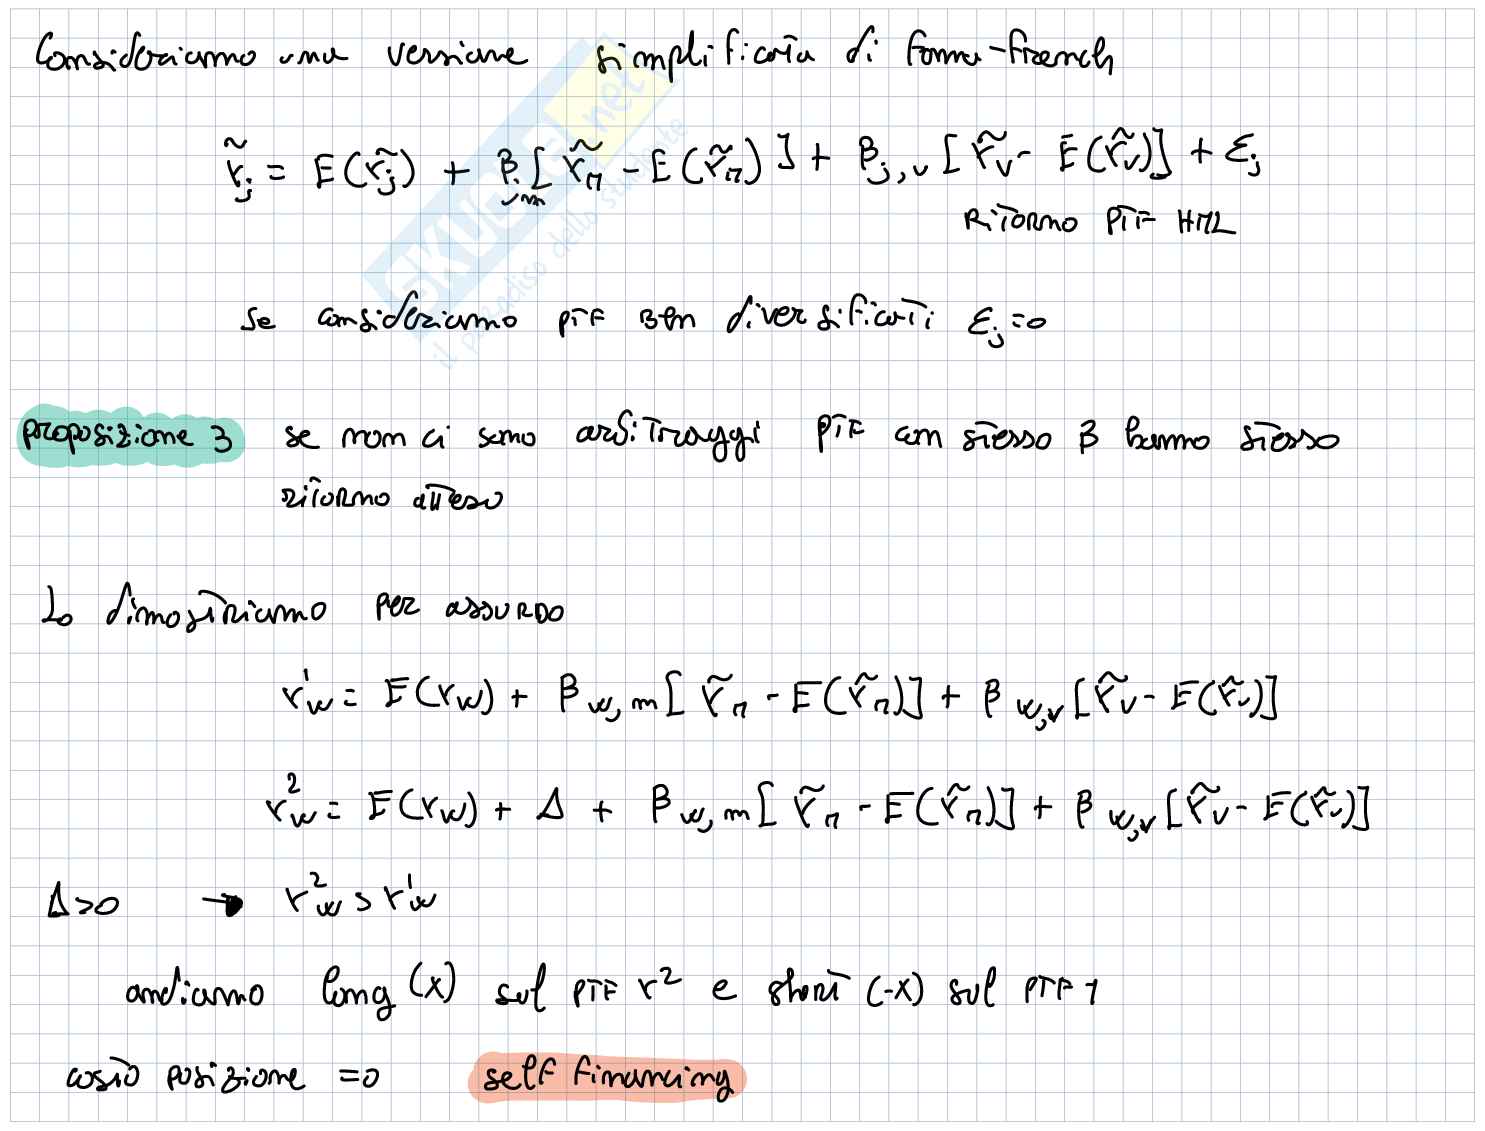 Consideriamo una versione simplificata di Fama-French
r̃_j = E(r̃_j) + β_j,m [ r̃_M - E(r̃_M) ] + β_j,v [ r̃_v - E(r̃_v) ] + ε_j
RITORNO PTF HML
Se consideriamo PTF BEN diversificati ε_j = 0
proposizione 3 se non ci sono arbitraggi PTF con stesso β hanno stesso
ritorno atteso
Lo dimostriamo per assurdo
r¹_w = E(r_w) + β_w,m [ r̃_M - E(r̃_M) ] + β_w,v [ r̃_v - E(r̃_v) ]
r²_w = E(r_w) + Δ + β_w,m [ r̃_M - E(r̃_M) ] + β_w,v [ r̃_v - E(r̃_v) ]
Δ>0 → r²_w > r¹_w
andiamo long (x) sul PTF r² e short (-x) sul PTF 1
costo posizione = 0 self financing
SKUOLA.net
il paradiso dello studente